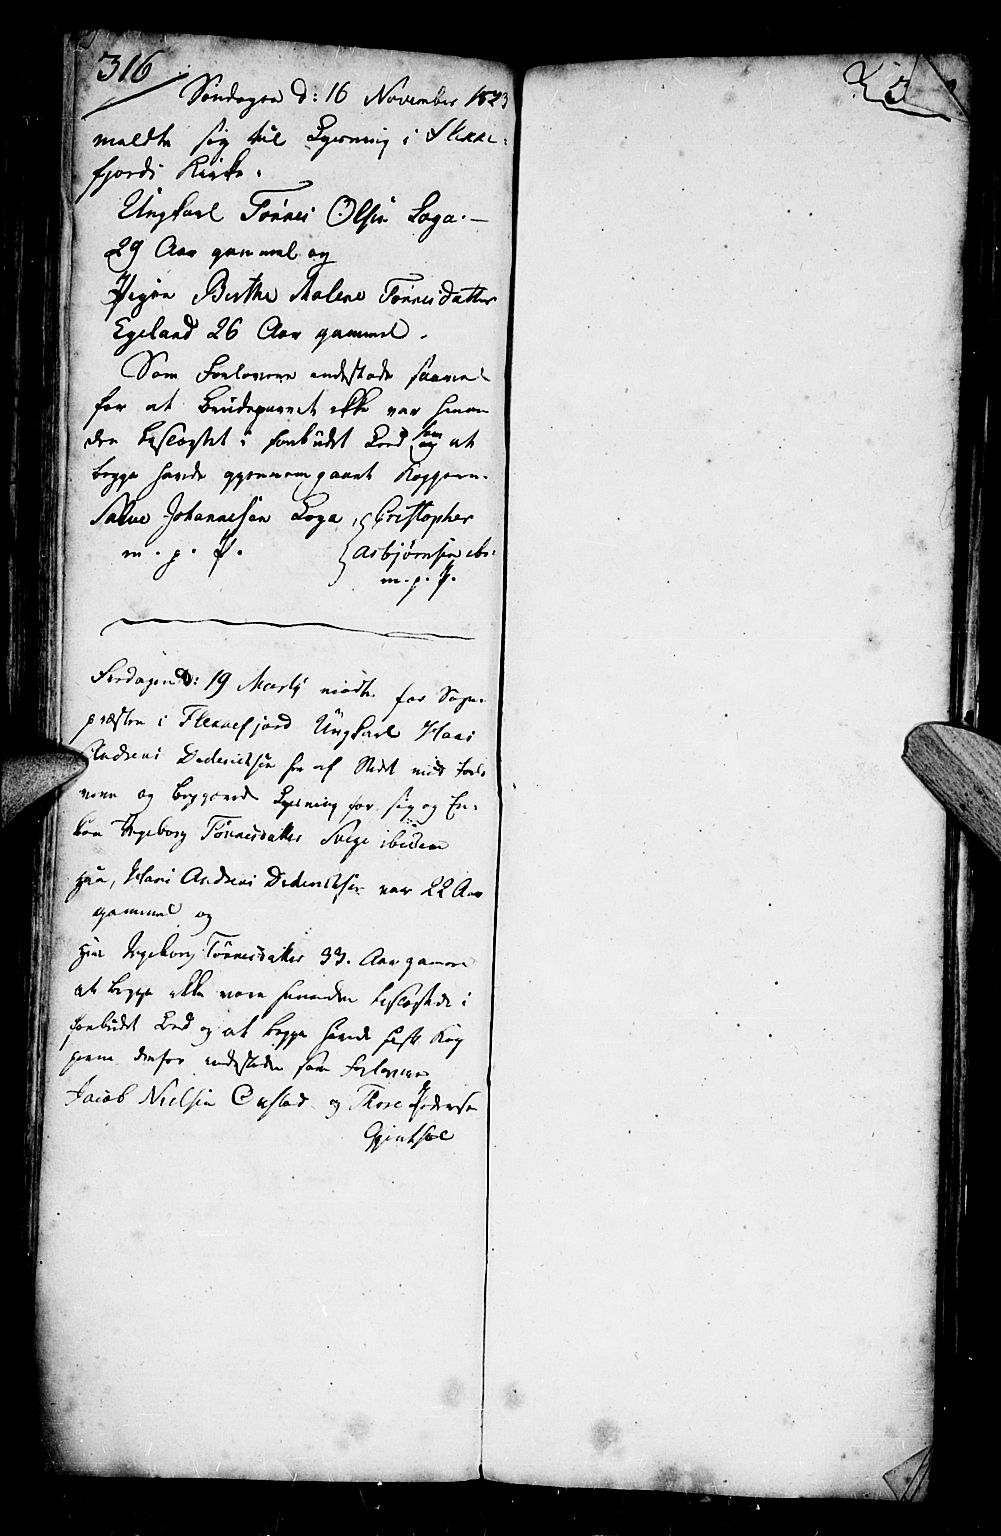 316
Søndagen d: 16 November 1823
meldte sig til Lysning i Flekke-
fjords Kirke.
Ungkarl Tønnes Olsen Loga. —
29 Aar gammel og
Pigen Berthe Malene Tønnesdatter
Egeland 26 Aar gammel.
Som Forlovere indestode saavel
for at Brudeparret ikke var hinan
den beslægtet i forbudet Leed som og at
begge havde gjennemgaaet Kopperne.
Salve Johannesen Loga, Cristopher
m. p. P. Asbjørnsen ibi:
m. p. P.
d: 19 Martj mødte for Sogne-
præsten i Flekkefjord Ungkarl Hans
Andreas Dederichsen her af Stedet med Forlo
vere og begjærede Lysning for sig og En-
ken Ingeborg Tønnesdatter ibidem
Hans Andreas Dederichsen var 22 Aar
gammel og
Ingeborg Tønnesdatter 33. Aar gammel
at begge ikke vare hinanden beslægtede i
forbudet Leed og at begge havde havt Kop
perne derfor indestode som Forlovere
Jacob Nielsen og Thore Pedersen